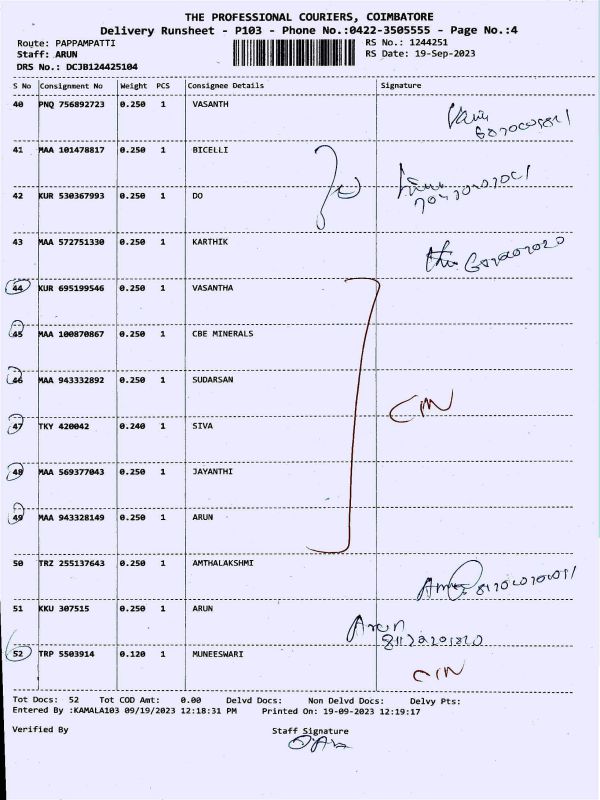 THE PROFESSIONAL COURIERS, COIMBATORE
Delivery Runsheet - P103 - Phone No.:0422-3505555 - Page No.:4
Route: PAPPAMPATTI RS No.: 1244251
Staff: ARUN RS Date: 19-Sep-2023
DRS No.: DCJB124425104
S No Consignment No Weight PCS Consignee Details Signature
40 PNQ 756892723 0.250 1 VASANTH
41 MAA 101478817 0.250 1 BICELLI
42 KUR 530367993 0.250 1 DO
43 MAA 572751330 0.250 1 KARTHIK
44 KUR 695199546 0.250 1 VASANTHA
45 MAA 100870867 0.250 1 CBE MINERALS
46 MAA 943332892 0.250 1 SUDARSAN
CIN
47 TKY 420042 0.240 1 SIVA
48 MAA 569377043 0.250 1 JAYANTHI
49 MAA 943328149 0.250 1 ARUN
50 TRZ 255137643 0.250 1 AMTHALAKSHMI
51 KKU 307515 0.250 1 ARUN Arun
52 TRP 5503914 0.120 1 MUNEESWARI CIN
Tot Docs: 52 Tot COD Amt: 0.00 Delvd Docs: Non Delvd Docs: Delvy Pts:
Entered By :KAMALA103 09/19/2023 12:18:31 PM Printed On: 19-09-2023 12:19:17
Verified By Staff Signature